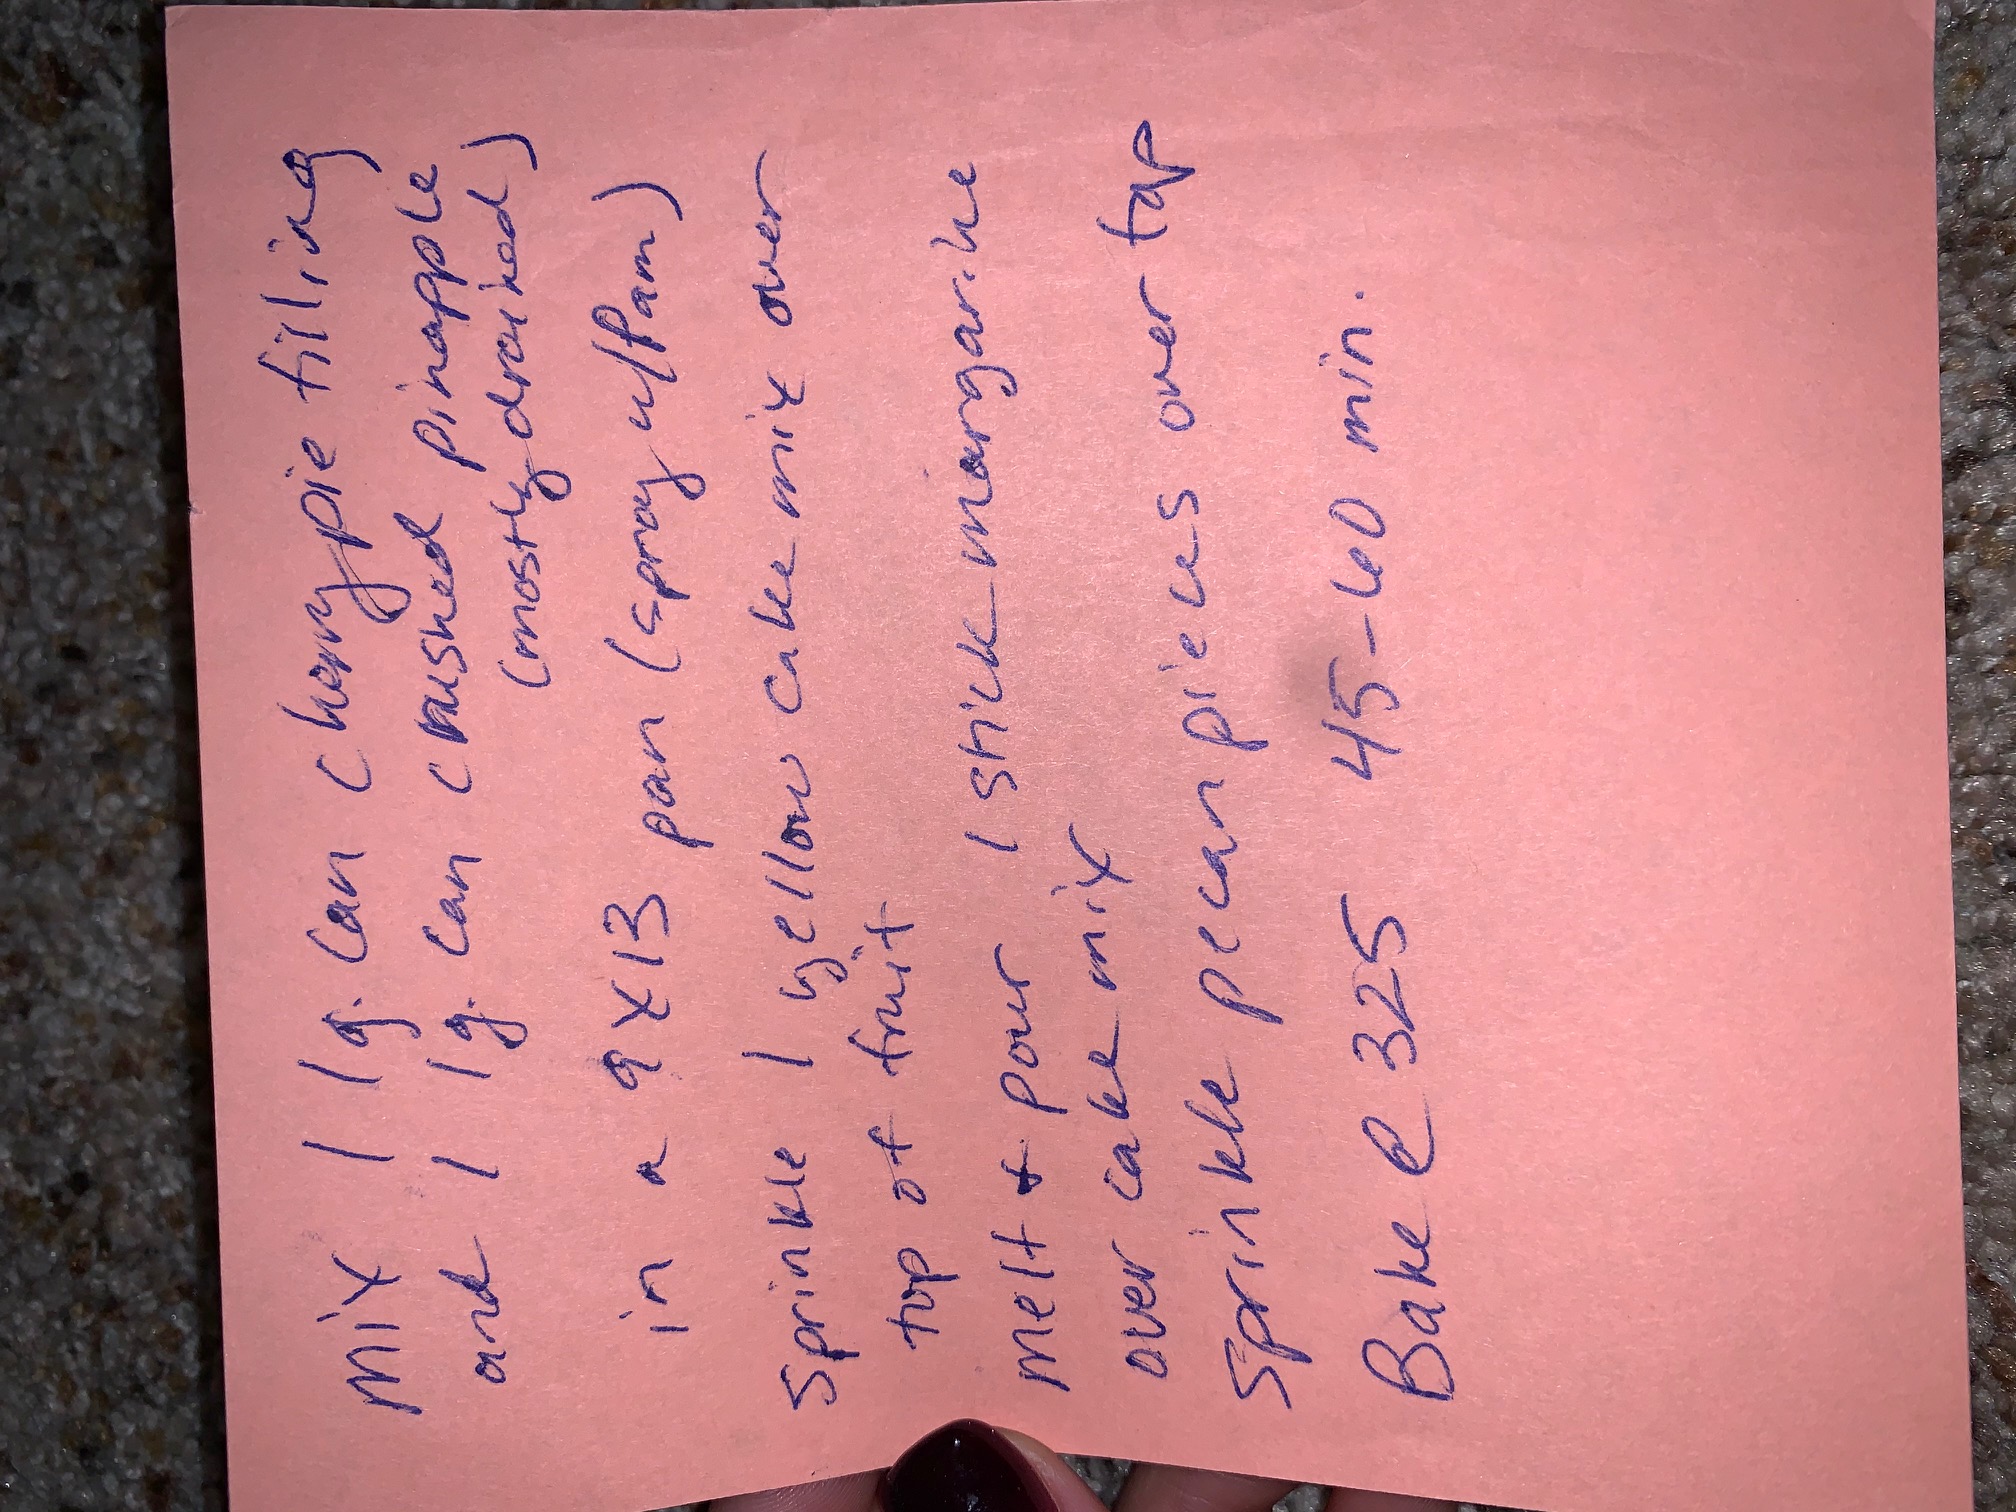 Mix 1 lg. can cherry pie filling
and 1 lg. can crushed pinapple
(mostly drained)
in a 9X13 pan (spray w/Pam)
Sprinkle 1 yellow cake mix over
top of fruit
Melt & pour 1 stick margarine
over cake mix
Sprinkle pecan pieces over top
Bake @ 325 45-60 min.